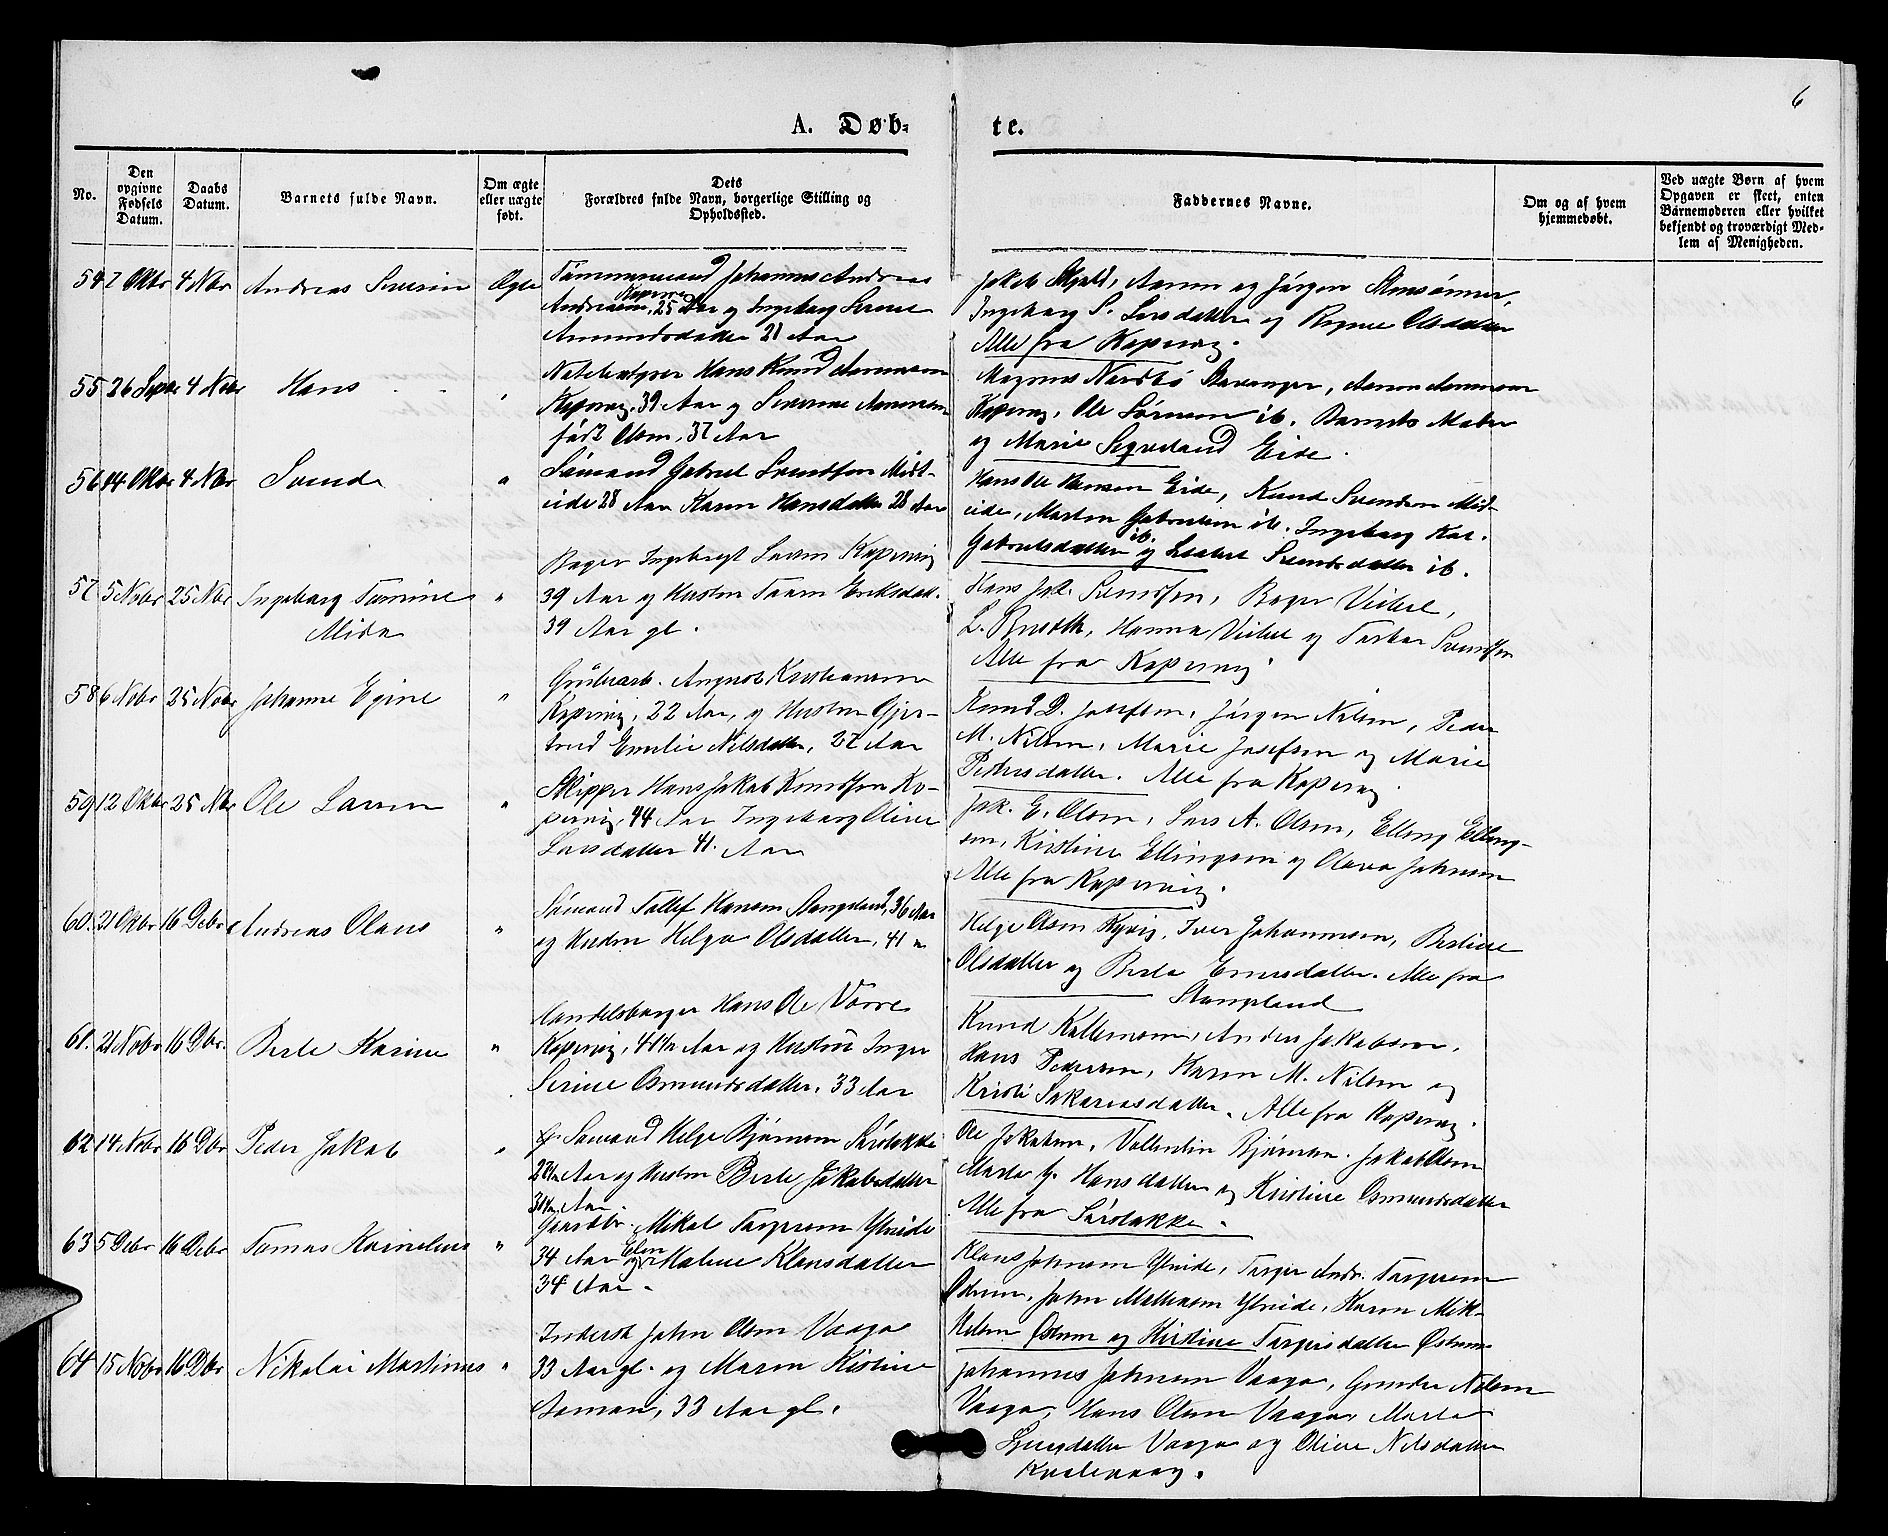 6
A. Døb-
te.
No.
Den opgivne Fødsels Datum.
Daabs Datum.
Barnets fulde Navn.
Om ægte eller uægte født.
Dets Forældres fulde Navn, borgerlige Stilling og Opholdssted.
Faddernes Navne.
Om og af hvem hjemmedøbt.
Ved uægte Børn af hvem Opgaven er skeet, enten Barnemoderen eller hvilket bekjendt og troværdigt Medlem af Menigheden.
54 7 Oktbr 4 Nbr Andreas Severin Ægte
Tømmermand Johannes Andreas
Andreasen, Kopervig 25 Aar og Ingeborg Serine
Amundsdatter 21 Aar
Jakob Skjold, Aamen og Jørgen
Ingeborg S. Larsdatter og Olsdatter
Alle fra Kopervig.
55 26 Septbr 4 Nobr Hans
Hans Knud Aamensen
Kopervig, 39 Aar og Severine Aamensen
født Olsen, 37 Aar
Magnus Nordbø Stavanger, Aamen Aamensen
Kopervig, Ole Sørensen ib. Barnets Moder
og Marie Eide.
56 14 Oktbr 4 Nbr Svend "
Sømand Gabriel Svendsen Midt-
eide 28 Aar Karen Hansdatter 28 Aar
Hans Ole Hansen Eide, Knud Svendsen Mid-
eide, Morten Gabrielsen ib. Ingeborg Kar.
Gabrielsdatter ib. og Lisabet Svendsdatter ib.
57 5 Nobr 25 Nbr Ingeborg Tomine
Alida "
Bager Ingebregt Kopervig
39 Aar og Hustru Eriksdat.
39 Aar gl.
Hans Jak. Bager
Hanna og Svendsen
Alle fra Kopervig
58 6 Nobr 25 Nobr Johanne Egine "
Grubearb. August Kristiansen
Kopervig, 22 Aar, og Hustru Gjer-
trud Emilie Nilsdatter, 27 Aar
Knud D. Josefsen, Jørgen Nilsen, Peder
M. Nilsen, Marie Josefsen og Marie
Pedersdatter. Alle fra Kopervig
59 12 Oktbr 25 Nbr Ole "
Skipper Hans Jakob Knudsen Ko-
pervig, 44 Aar Ingeborg Oline
Larsdatter 41. Aar
Jak. E. Olsen, Lars A. Olsen, Elling Elling-
sen, Kirstine Ellingsen og Olava Johnsen
Alle fra Kopervig.
60. 21 Oktbr 16 Debr Andreas Olaus "
Sømand Tollef Hansen Stangeland, 36 Aar
og Hustru Helga Olsdatter, 41 "
Helge Olsen Kyvig, Iver Johannesen, Bertine
Olsdatter og Berta Alle fra
Stangeland
61. 21 Nobr 16 Dbr. Berte Karine "
Handelsborger Hans Ole Vorre
Kopervig, Aar og Hustru Inger
Serine Osmundsdatter, 33 Aar
Knud Kallemsen, Anders Jakobsen,
Hans Pedersen, Karen M. Nilsen og
Kristi Sakariasdatter. Alle fra Kopervig.
62 14 Nobr 16 Dbr Peder Jakob "
Sømand Helge Bjørnsen Sørstokke
Aar og Hustru Berte Jakobsdatter
Aar.
Ole Jakobsen, Vallentin Bjørnsen. Jakob Olsen
Marta G. Hansdatter og Kristine Osmundsdatter
Alle fra Sørstokke.
63 5 Debr 16 Debr Tomas Kornelius "
Gaardbr. Mikal Torgersen Ytreide
34 Aar og Elen Malene Klausdatter
34 Aar.
Klaus Johnsen Ytreide, Torger Andr. Torgersen
Østrem, John Ytreide, Karen Mik-
kelsen Østrem og Kirstine Torgersdatter Østrem
64 15 Nobr 16 Dbr Nikolai Martinus "
Inderst John Olsen Vaaga
33 Aar gl. og Maren Kistine
33 Aar gl.
Johannes Johnsen Vaaga, Nilsen
Vaaga, Hans Olsen Vaaga, Marta
Vaaga og Oline Nilsdatter
Kvalevaag.